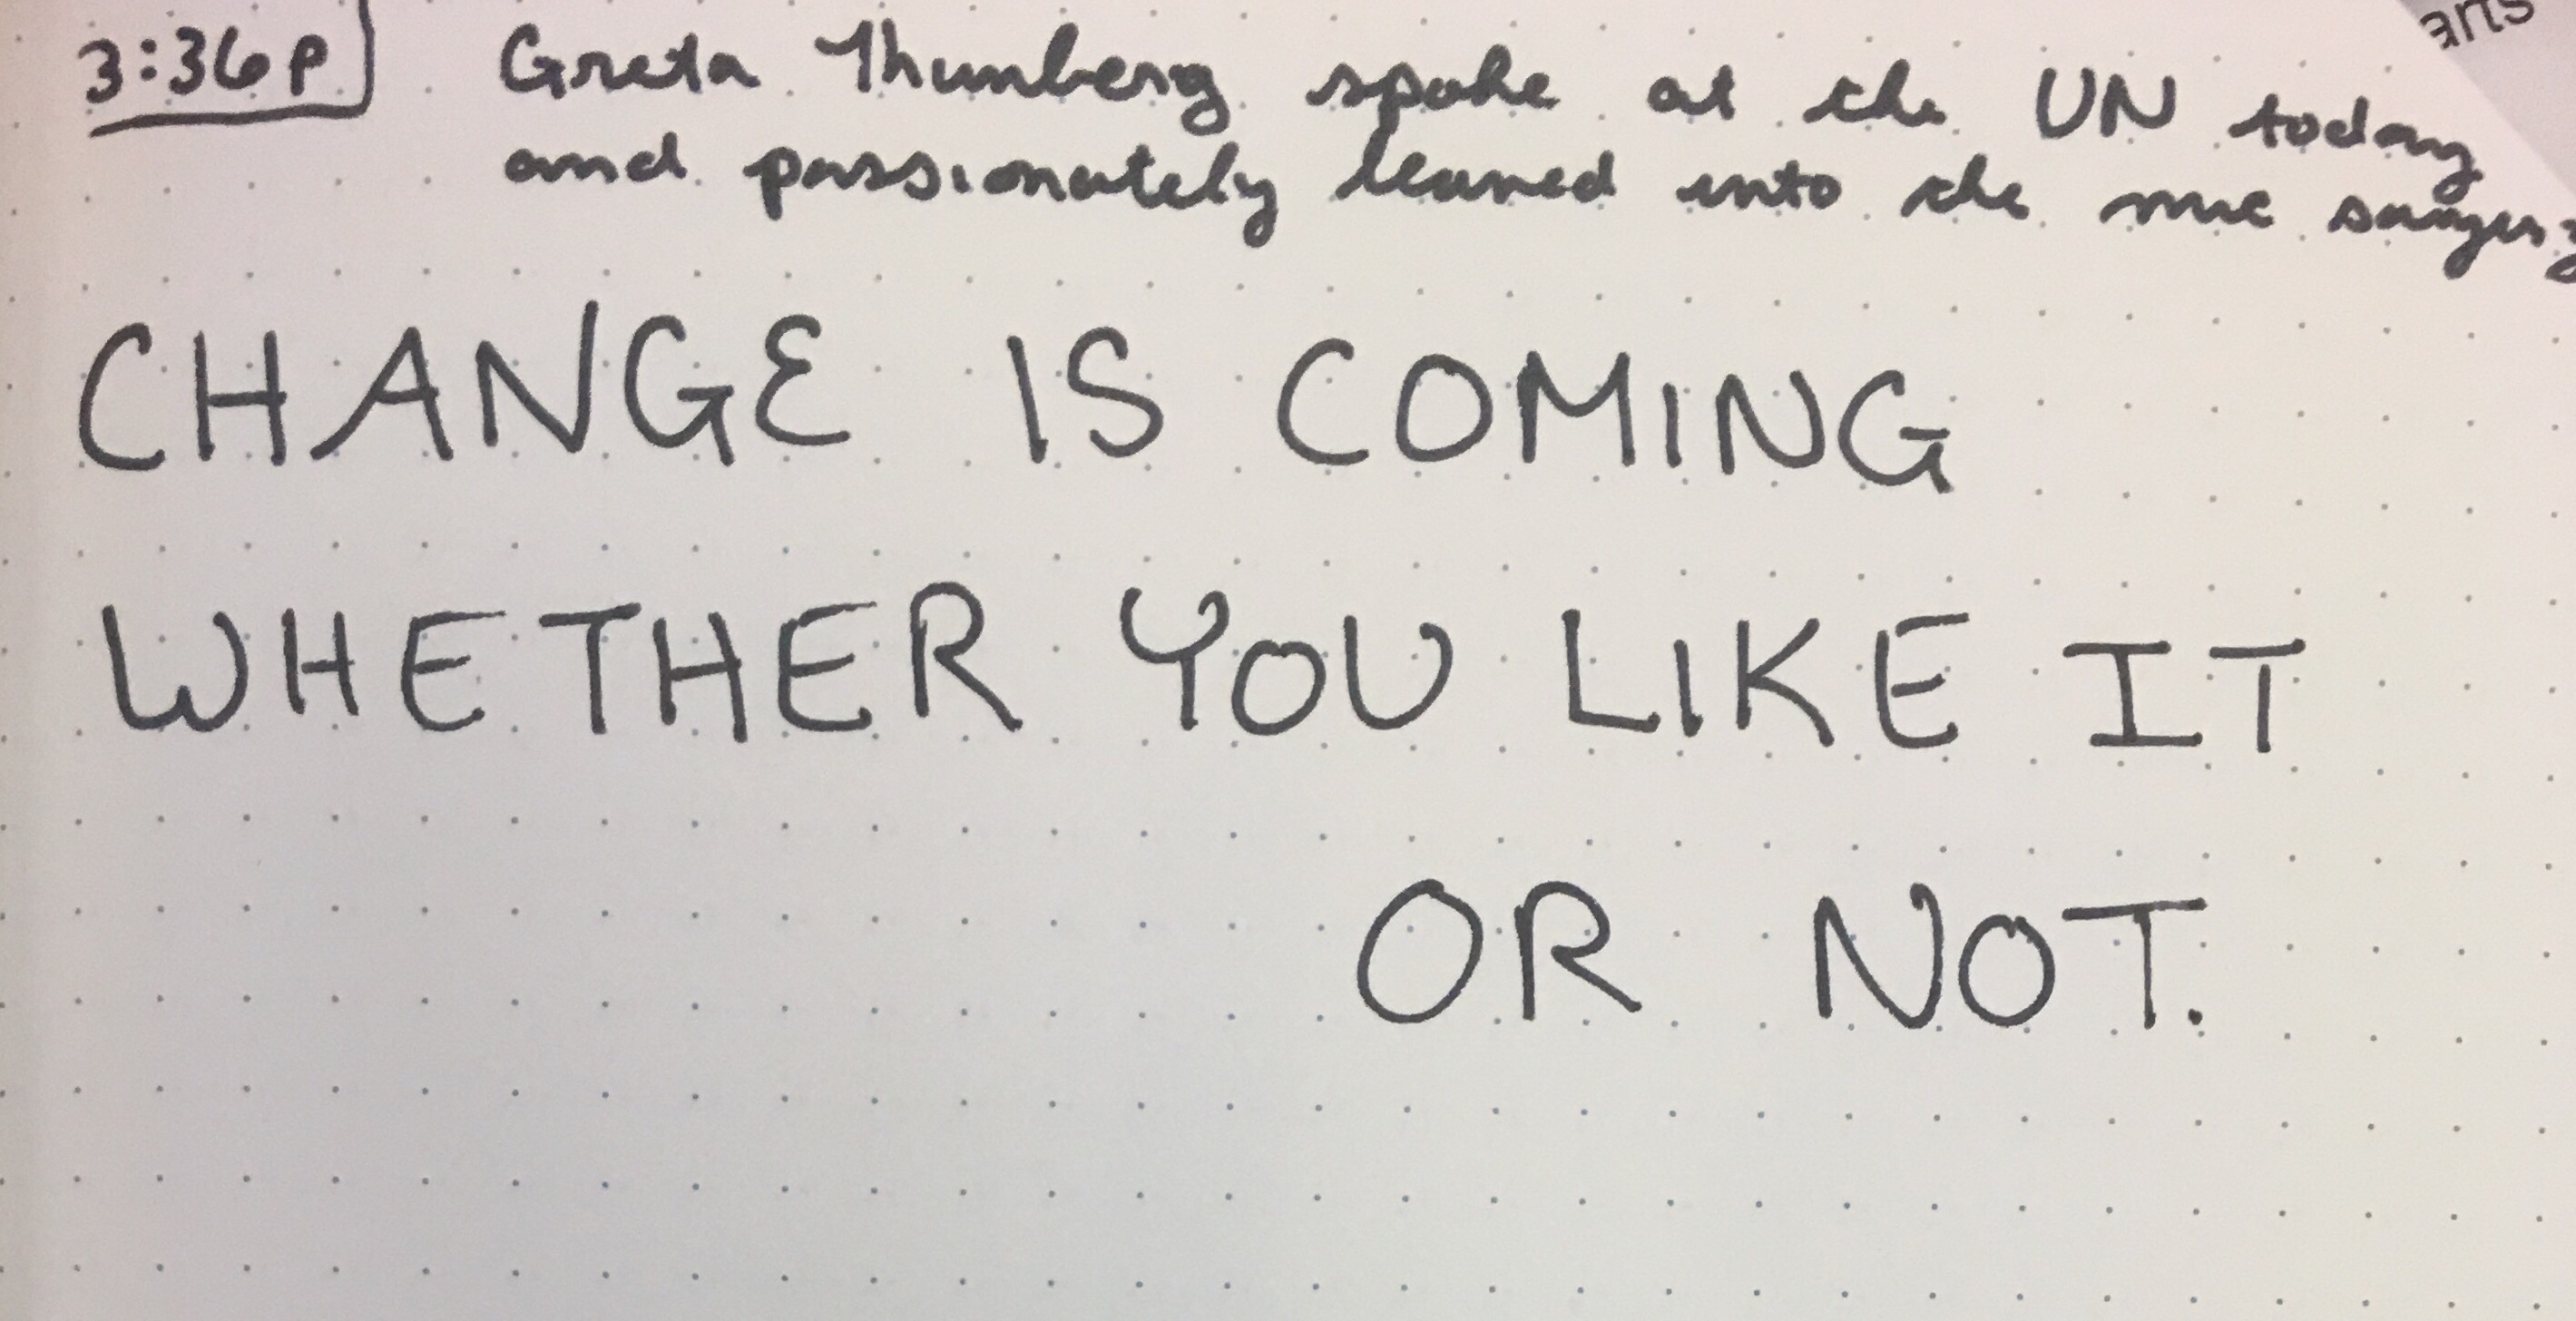 3:36p Greta Thunberg spoke at the UN today
arts
and passionately leaned into the mic
CHANGE IS COMING
WHETHER YOU LIKE IT
OR NOT.